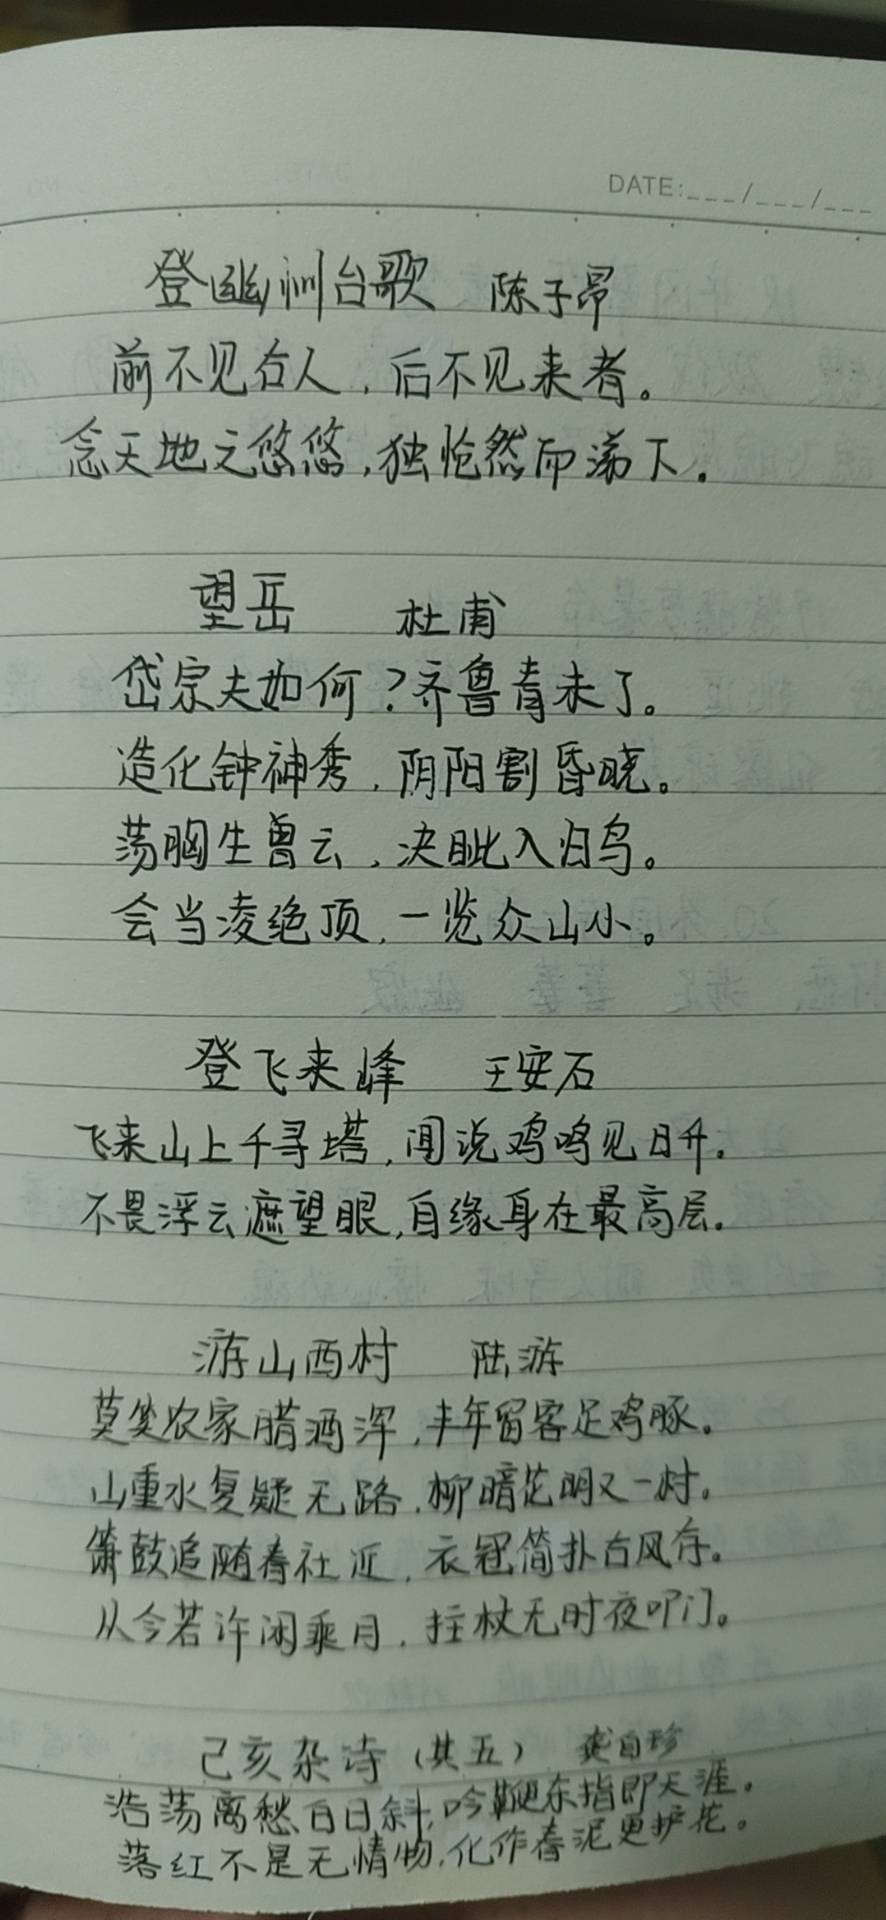 DATE:___/___/___
登幽州台歌 陈子昂
前不见古人，后不见来者。
念天地之悠悠，独怆然而涕下。
望岳 杜甫
岱宗夫如何？齐鲁青未了。
造化钟神秀，阴阳割昏晓。
荡胸生曾云，决眦入归鸟。
会当凌绝顶，一览众山小。
登飞来峰 王安石
飞来山上千寻塔，闻说鸡鸣见日升。
不畏浮云遮望眼，自缘身在最高层。
游山西村 陆游
莫笑农家腊酒浑，丰年留客足鸡豚。
山重水复疑无路，柳暗花明又一村。
箫鼓追随春社近，衣冠简扑古风存。
从今若许闲乘月，拄杖无时夜叩门。
己亥杂诗（其五） 龚自珍
浩荡离愁白日斜，吟鞭东指即天涯。
落红不是无情物，化作春泥更护花。